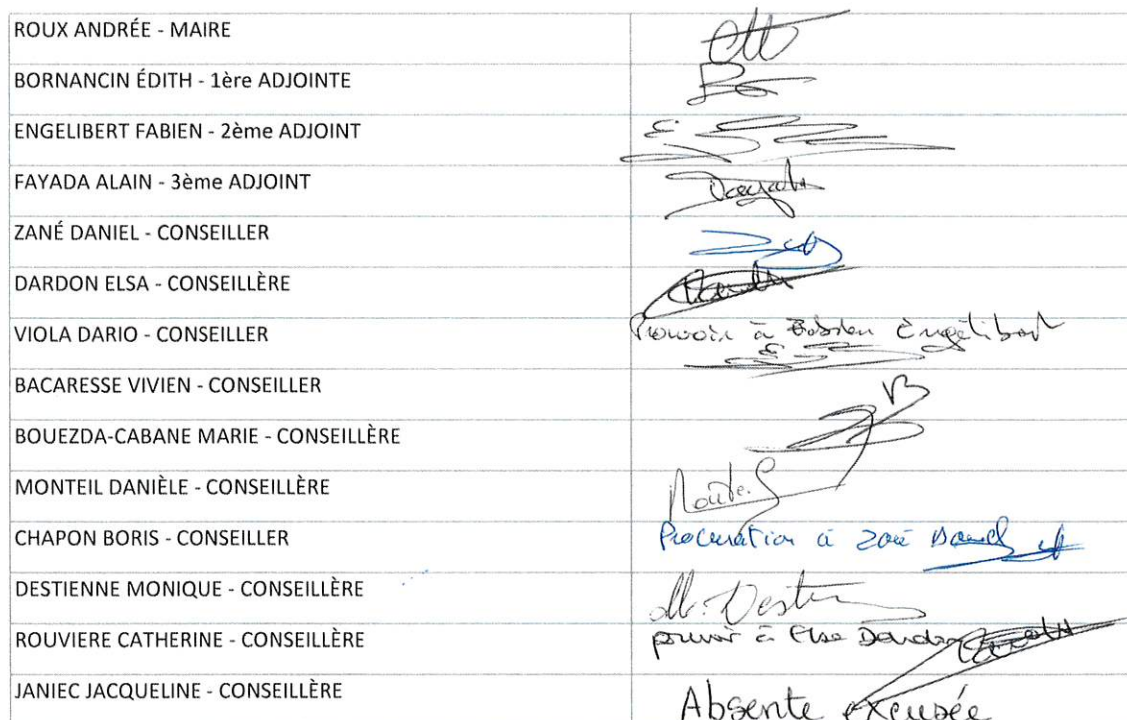 ROUX ANDRÉE - MAIRE
BORNANCIN ÉDITH - 1ère ADJOINTE
ENGELIBERT FABIEN - 2ème ADJOINT
FAYADA ALAIN - 3ème ADJOINT
ZANÉ DANIEL - CONSEILLER
DARDON ELSA - CONSEILLÈRE
VIOLA DARIO - CONSEILLER
Pouvoir à Fabien Engélibert
BACARESSE VIVIEN - CONSEILLER
VB
BOUEZDA-CABANE MARIE - CONSEILLÈRE
MONTEIL DANIÈLE - CONSEILLÈRE
CHAPON BORIS - CONSEILLER
Procuration à Zané Daniel
DESTIENNE MONIQUE - CONSEILLÈRE
M. Destien
ROUVIERE CATHERINE - CONSEILLÈRE
pouvoir à Elsa Dardon
JANIEC JACQUELINE - CONSEILLÈRE
Absente excusée